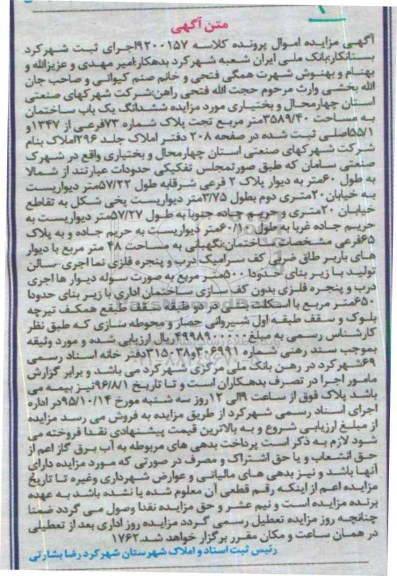 متن آگهی
آگهی مزایده اموال پرونده کلاسه ۹۲۰۰۱۵۷اجرای ثبت شهرکرد
بستانکار:بانک ملی ایران شعبه شهرکرد بدهکار:امیر مهدی و عزیزالله و
بهنام و بهنوش شهرت همگی فتحی و خانم صنم کیوانی و صاحب جان
الله بخشی وارث مرحوم حجت الله فتحی راهن:شرکت شهرکهای صنعتی
استان چهارمحال و بختیاری مورد مزایده ششدانگ یک باب ساختمان
به مساحت ۳۵۸۹/۴۰متر مربع تحت پلاک شماره ۷۳فرعی از ۱۳۴۷و
۵۵/۱اصلی ثبت شده در صفحه ۲۰۸ دفتر املاک جلد ۲۹۶املاک بنام
شرکت شهر کهای صنعتی استان چهارمحال و بختیاری واقع در شهرک
صنعتی سامان که طبق صورتمجلس تفکیکی حدودات عبارتند از شمالا
به طول ۶۰متر به دیوار پلاک ۲ فرعی شرقابه طول ۵۷/۲۲متر دیواریست
به خیابان ۲۰متری دوم بطول ۳/۷۵متر دیواریست پخی شکل به تقاطع
خیابان ۲۰متری و حریم جاده جنوبا به طول ۵۷/۲۷متر دیواریست به
حریم جاده غربا به طول ۶۰/۱۰متر دیواریست به حریم جاده و به پلاک
۶۵فرعی مشخصات ساختمان:نگهبانی به مساحت ۴۸ متر مربع با دیوار
های باربر طاق ضربی کف سرامیک درب و پنجره فلزی نما اجری-سالن
تولید با زیر بنای حدودا ۵۰۰متر مربع به صورت سوله دیوار ها اجری
درب و پنجره فلزی بدون کف سازی ساختمان اداری با زیر بنای حدودا
۶۵۰متر مربع با اسکلت بتنی در دو طبقه سقف طبقع همکف تیرچه
بلوک و سقف طبقه اول شیروانی حصار و محوطه سازی که طبق نظر
کارشناس رسمی به مبلغ ریال ارزیابی شده و مورد وثیقه
بموجب سند رهنی شماره ۳۰۶۹۹۱و۳۱۵۰۳۸دفتر خانه اسناد رسمی
۶۹شهرکرد در رهن بانک ملی مرکزی شهرکرد می باشد و برابر گزارش
مامور اجرا در تصرف بدهکاران است و تا تاریخ ۹۶/۸/۱نیز بیمه می
باشد پلاک فوق از ساعت ۹الی ۱۲روز سه شنبه مورخ ۹۵/۱۰/۱۴در اداره
اجرای اسناد رسمی شهرکرد از طریق مزایده به فروش می رسد مزایده
از مبلغ ارزیابی شروع و به بالاترین قیمت پیشنهادی نقدا فروخته می
شود لازم به ذکر است پرداخت بدهی های مربوطه به آب برق گاز اعم از
حق انشعاب و یا حق اشتراک و مصرف در صورتی که مورد مزایده دارای
آنها باشد و نیز بدهی های مالیاتی و عوارض شهرداری وغیره تا تاریخ
مزایده اعم از اینکه رقم قطعی آن معلوم شده یا نشده باشد به عهده
برنده مزایده است و نیم عشر و حق مزایده نقدا وصول می گردد ضمنا
چنانچه روز مزایده تعطیل رسمی گردد مزایده روز اداری بعد از تعطیلی
در همان ساعت و مکان مقرر برگزار خواهد شد.۱۷۶۲
رئیس ثبت اسناد و املاک شهرستان شهرکرد رضا بشارتی